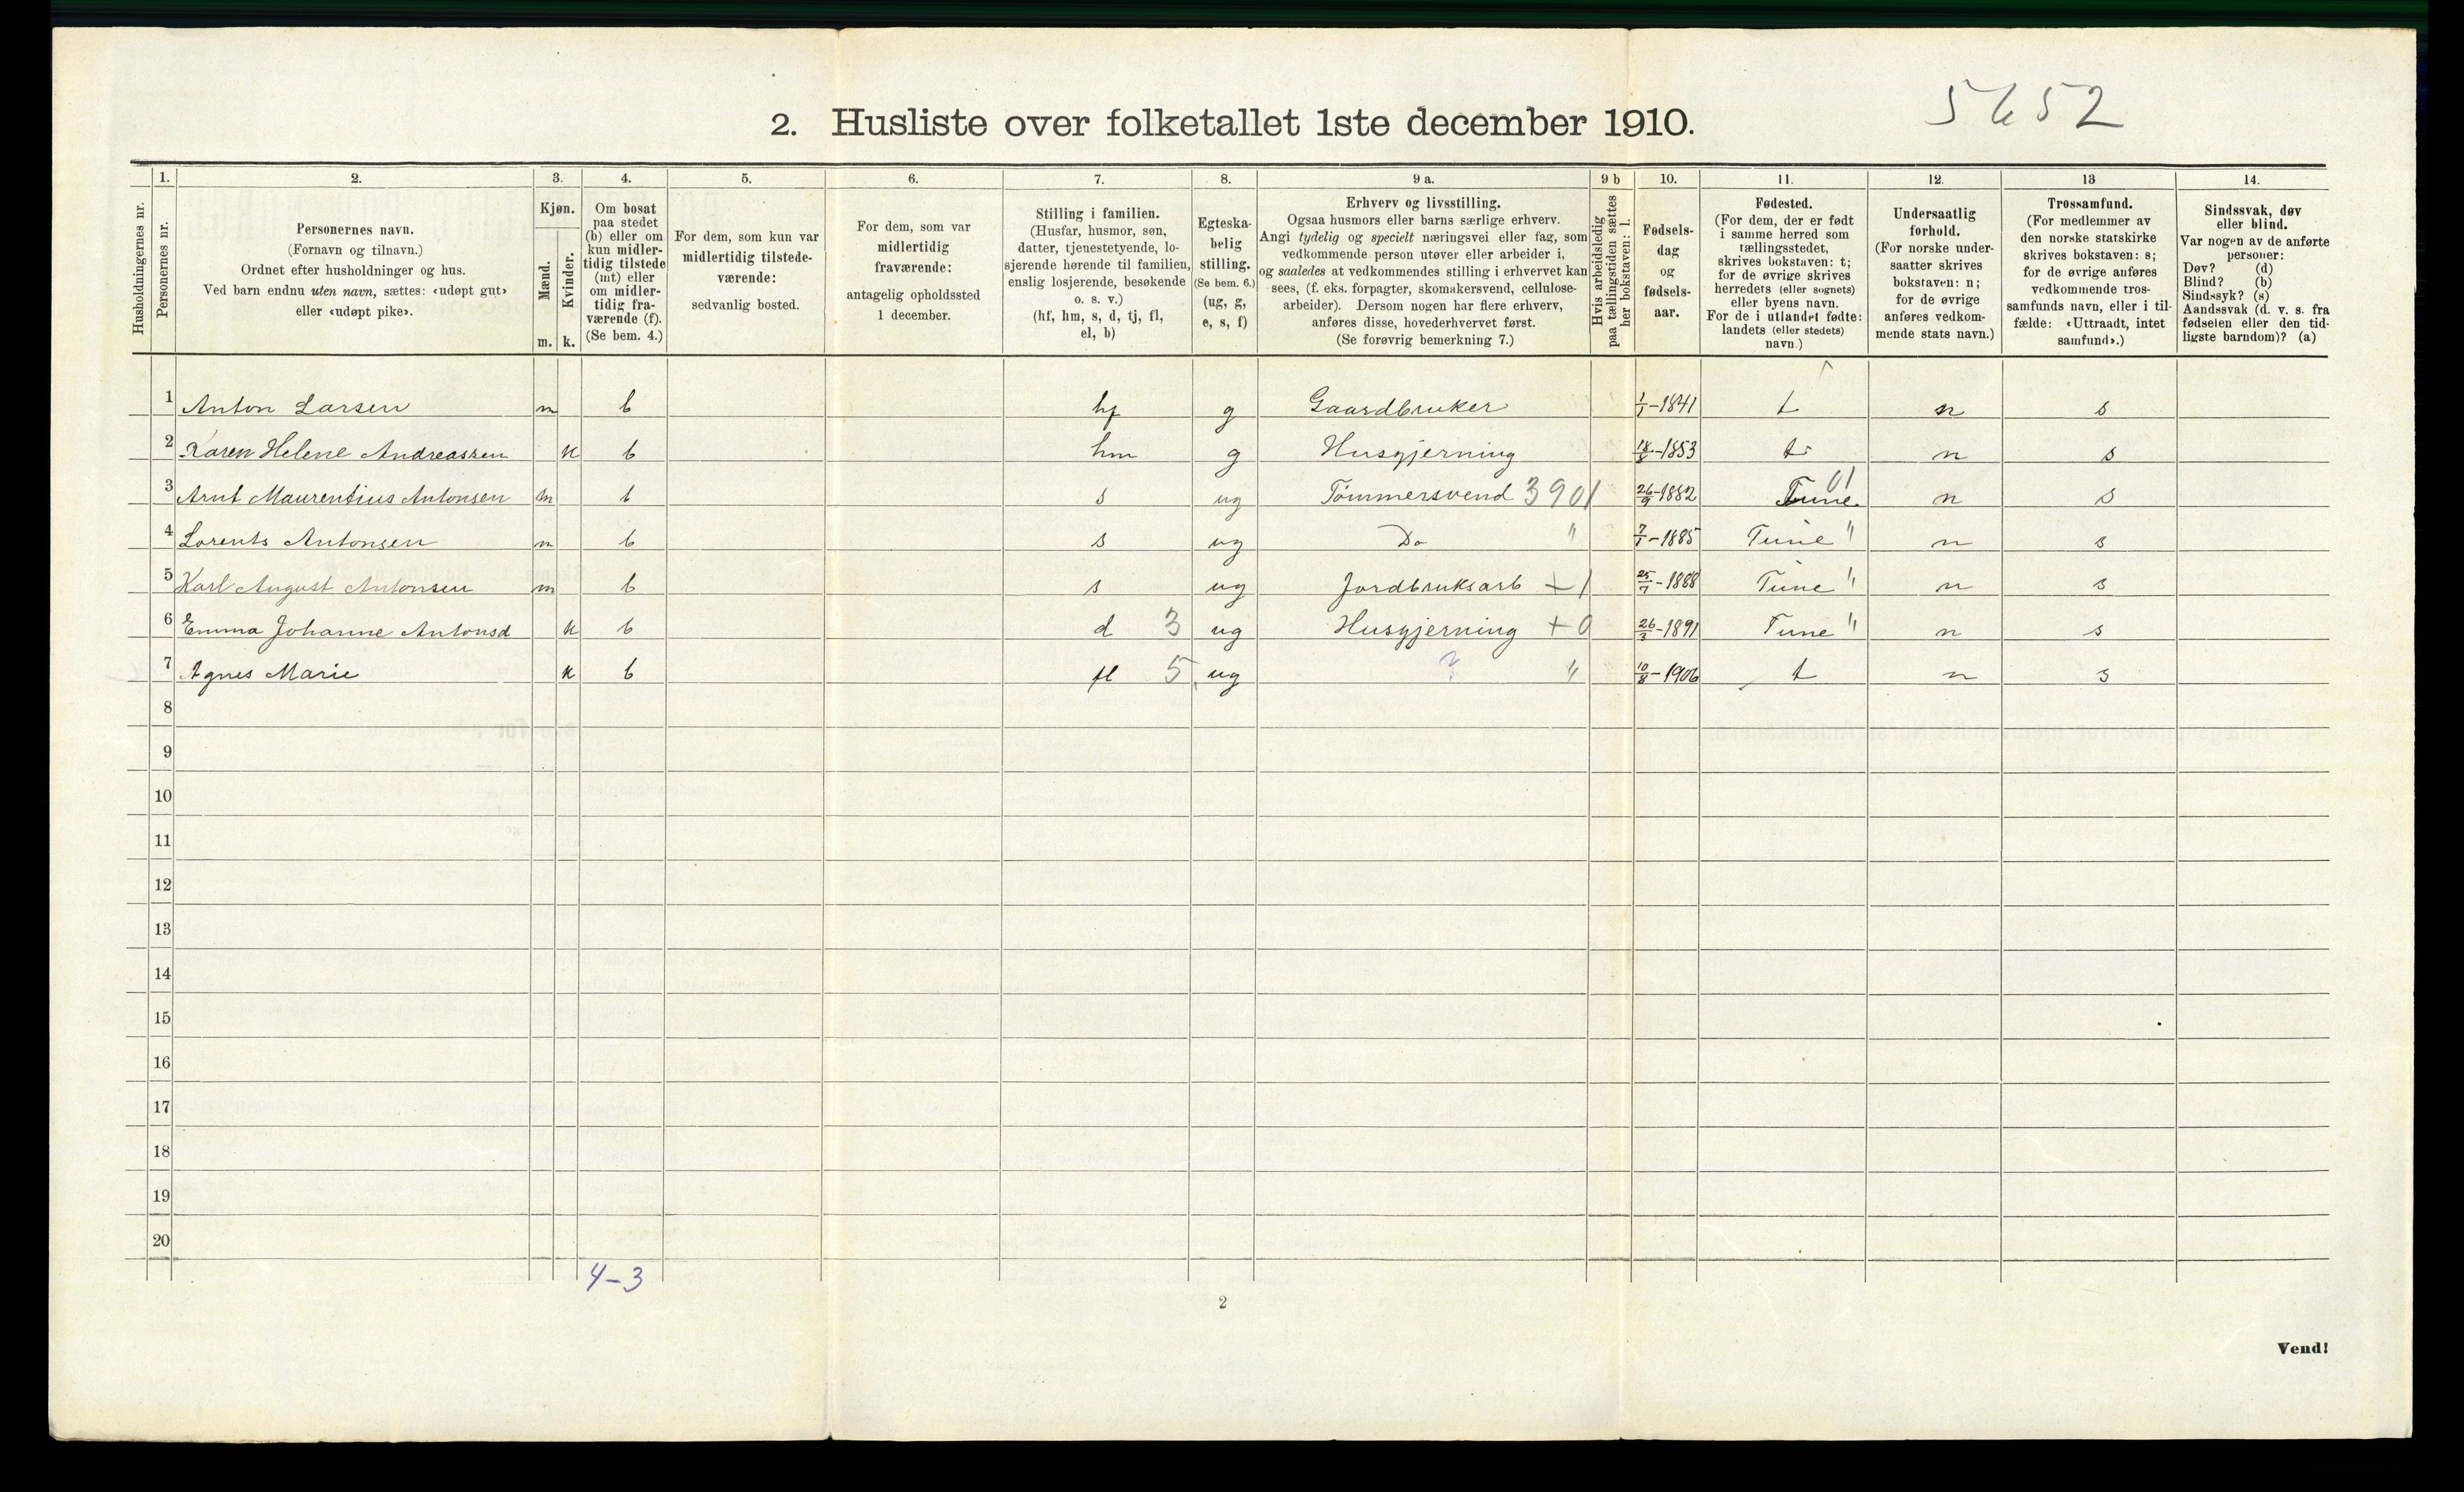 5652
2. Husliste over folketallet 1ste december 1910.
Husholdningernes nr.
1. Personernes nr.
2. Personernes navn.
(Fornavn og tilnavn.)
Ordnet efter husholdninger og hus.
Ved barn endnu uten navn, sættes: «udøpt gut»
eller «udøpt pike».
3. Kjøn.
Mænd. m.
Kvinder. k.
4. Om bosat
paa stedet
(b) eller om
kun midler-
tidig tilstede
(mt) eller
om midler-
tidig fra-
værende (f).
(Se bem. 4.)
5. For dem, som kun var
midlertidig tilstede-
værende:
sedvanlig bosted.
6. For dem, som var
midlertidig
fraværende:
antagelig opholdssted
1 december.
7. Stilling i familien.
(Husfar, husmor, søn,
datter, tjenestetyende, lo-
sjerende hørende til familien,
enslig losjerende, besøkende
o. s. v.)
(hf, hm, s, d, tj, fl,
el, b)
8. Egteska-
belig
stilling.
(Se bem. 6.)
(ug, g,
e, s, f)
9 a. Erhverv og livsstilling.
Ogsaa husmors eller barns særlige erhverv.
Angi tydelig og specielt næringsvei eller fag, som
vedkommende person utøver eller arbeider i,
og saaledes at vedkommendes stilling i erhvervet kan
sees, (f. eks. forpagter, skomakersvend, cellulose-
arbeider). Dersom nogen har flere erhverv,
anføres disse, hovederhvervet først.
(Se forøvrig bemerkning 7.)
9 b Hvis arbeidsledig
paa tællingstiden sættes
her bokstaven: l.
10. Fødsels-
dag
og
fødsels-
aar.
11. Fødested.
(For dem, der er født
i samme herred som
tællingsstedet,
skrives bokstaven: t;
for de øvrige skrives
herredets (eller sognets)
eller byens navn.
For de i utlandet fødte:
landets (eller stedets)
navn.)
12. Undersaatlig
forhold.
(For norske under-
saatter skrives
bokstaven: n;
for de øvrige
anføres vedkom-
mende stats navn.)
13 Trossamfund.
(For medlemmer av
den norske statskirke
skrives bokstaven: s;
for de øvrige anføres
vedkommende tros-
samfunds navn, eller i til-
fælde: «Uttraadt, intet
samfund».)
14. Sindssvak, døv
eller blind.
Var nogen av de anførte
personer:
Døv? (d)
Blind? (b)
Sindssyk? (s)
Aandssvak (d. v. s. fra
fødselen eller den tid-
ligste barndom)? (a)
1 Anton Larsen m b hf g Gaardbruker 1/1-1841 t n s
2 Karen Helene Andreassen k b hm g Husgjerning 18/8-1853 t n s
3 Arnt Maurentius Antonsen m b s ug Tømmersvend 3901 26/9-1882 Tune 01 n s
4 Lorents Antonsen m b s ug Do " 7/1-1885 Tune " n s
5 Karl August Antonsen m b s ug Jordbruksarb +1 25/7-1888 Tune " n s
6 Emma Johanne Antonsd k b d 3 ug Husgjerning +0 26/3-1891 Tune " n s
7 Agnes Marie k b fl 5 ug ? " 10/8-1906 t n s
8
9
10
11
12
13
14
15
16
17
18
19
20
4-3
2
Vend!